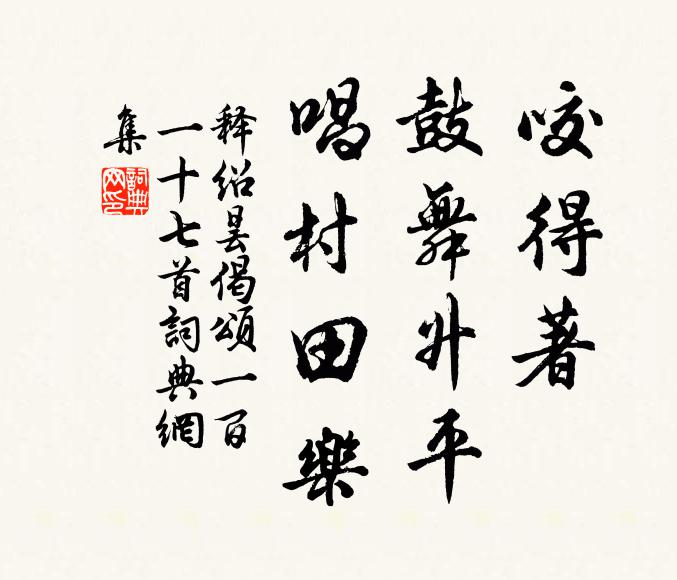 咬得著
鼓舞升平
唱村田樂
释绍昙偈頌一百
一十七首詞典網
集
詞典
网印